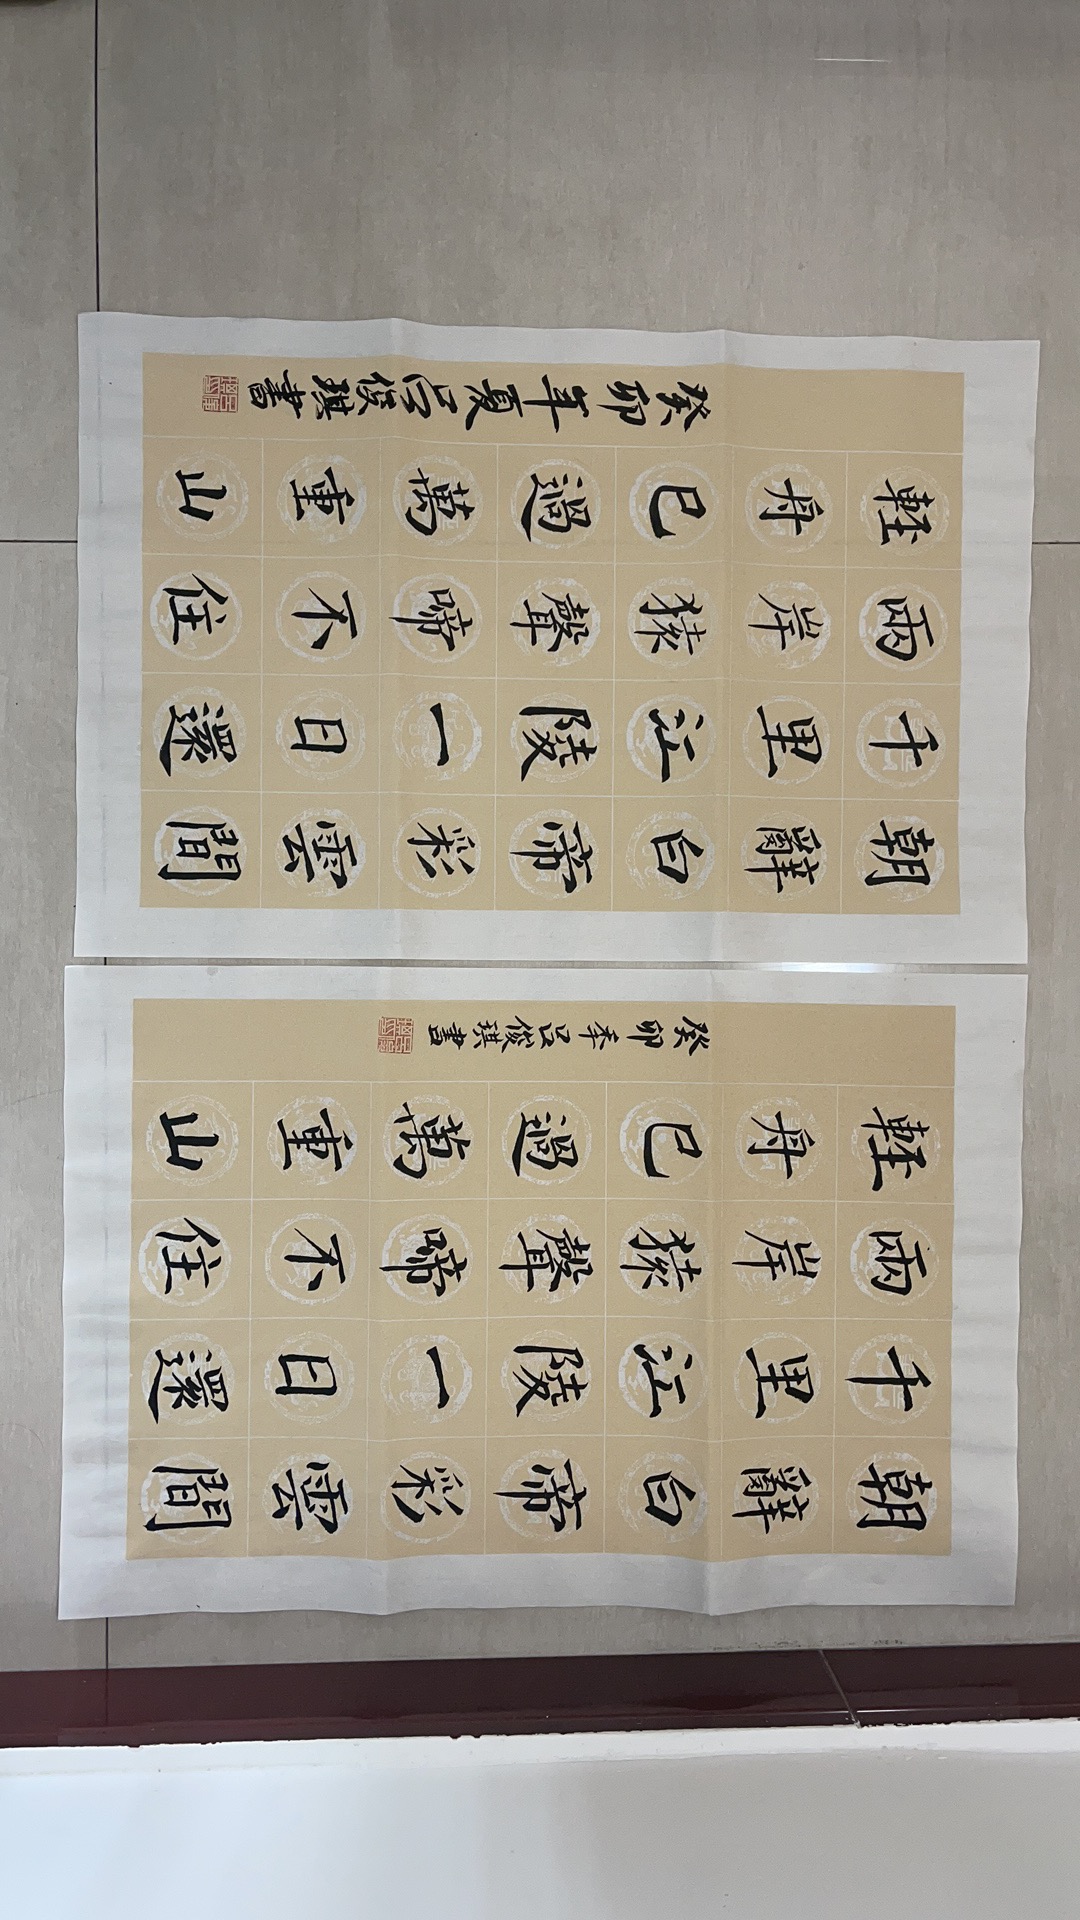 朝辭白帝彩雲間
千里江陵一日還
兩岸猿聲啼不住
輕舟已過萬重山
癸卯年吕俊琪書
朝辭白帝彩雲間
千里江陵一日還
兩岸猿聲啼不住
輕舟已過萬重山
癸卯年夏吕俊琪書